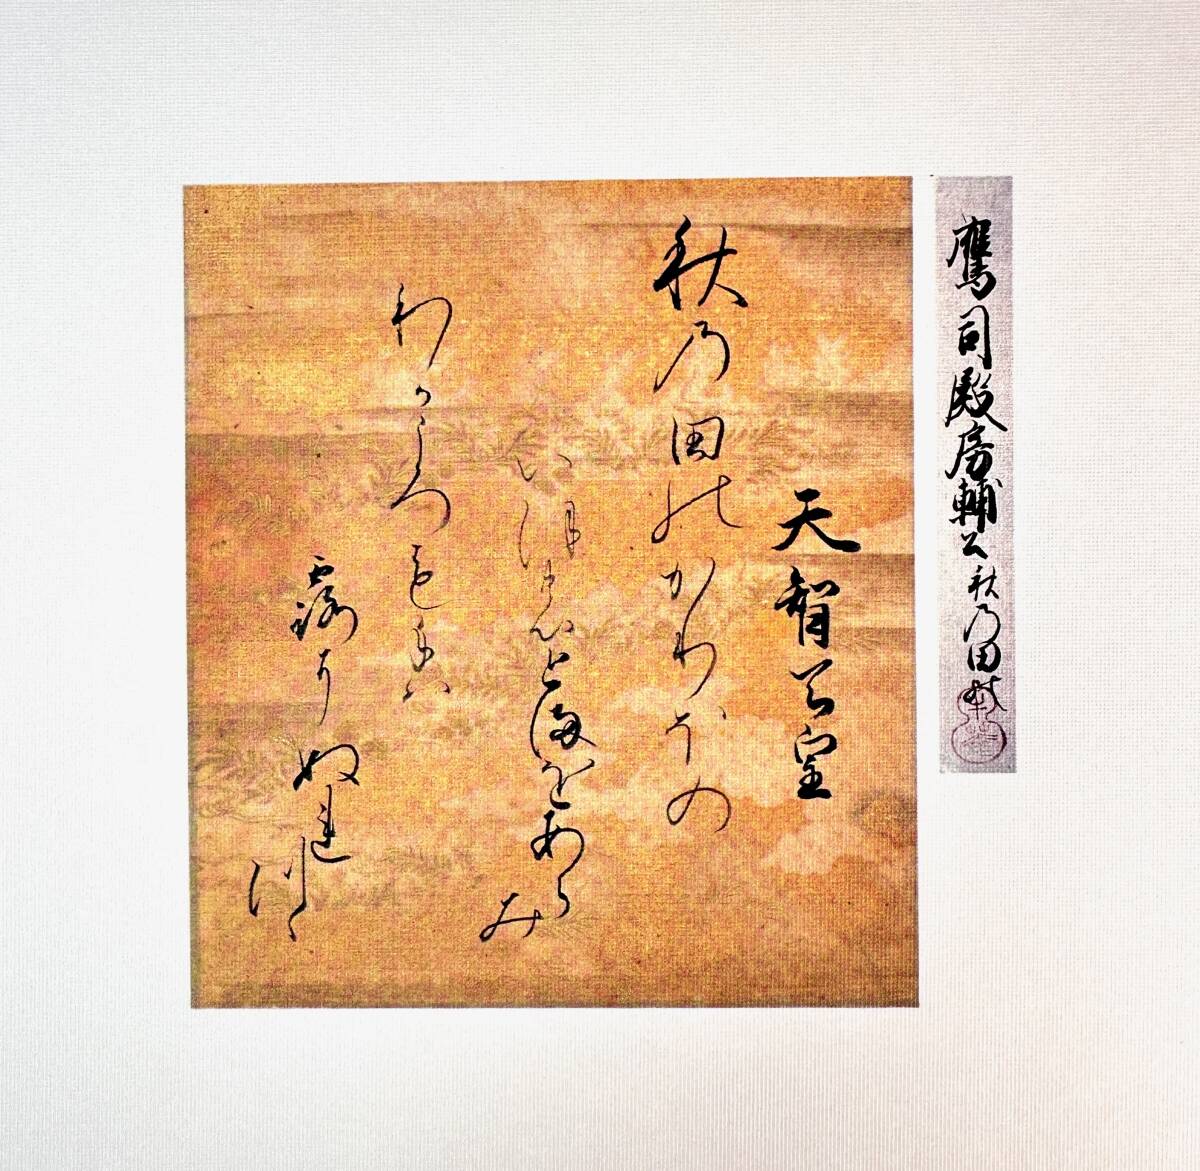 鷹司殿房輔公 秋乃田の
天智天皇
秋乃田のかりほの
いほのとまをあら
み
わかころも手ハ
露にぬれ
つゝ